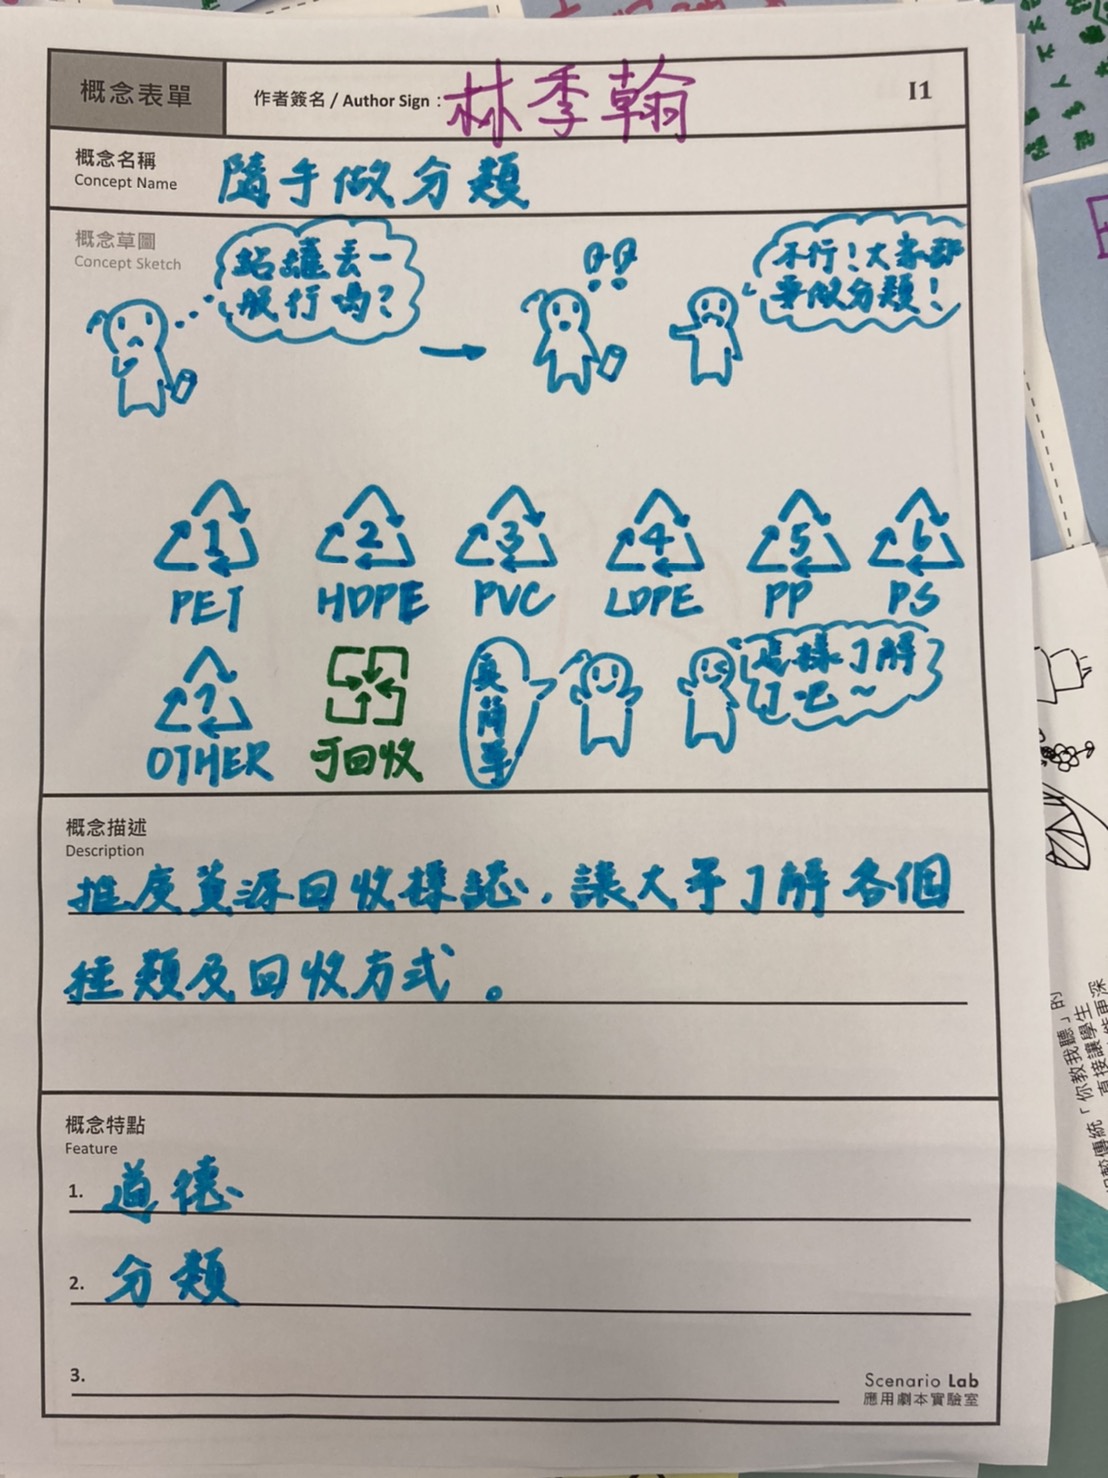 概念表單
作者簽名 / Author Sign : 林季翰
I1
概念名稱
Concept Name
隨手做分類
概念草圖
Concept Sketch
鋁罐丟一
般行嗎?
??
不行!大家都
要做分類!
1 2 3 4 5 6
PET HDPE PVC LDPE PP PS
7
OTHER
可回收
真簡單
怎樣了解
了吧~
概念描述
Description
推廣資源回收標誌,讓大眾了解各個
種類及回收方式。
概念特點
Feature
1. 道德
2. 分類
3.
Scenario Lab
應用劇本實驗室
「你教我聽」的
直接讓學生